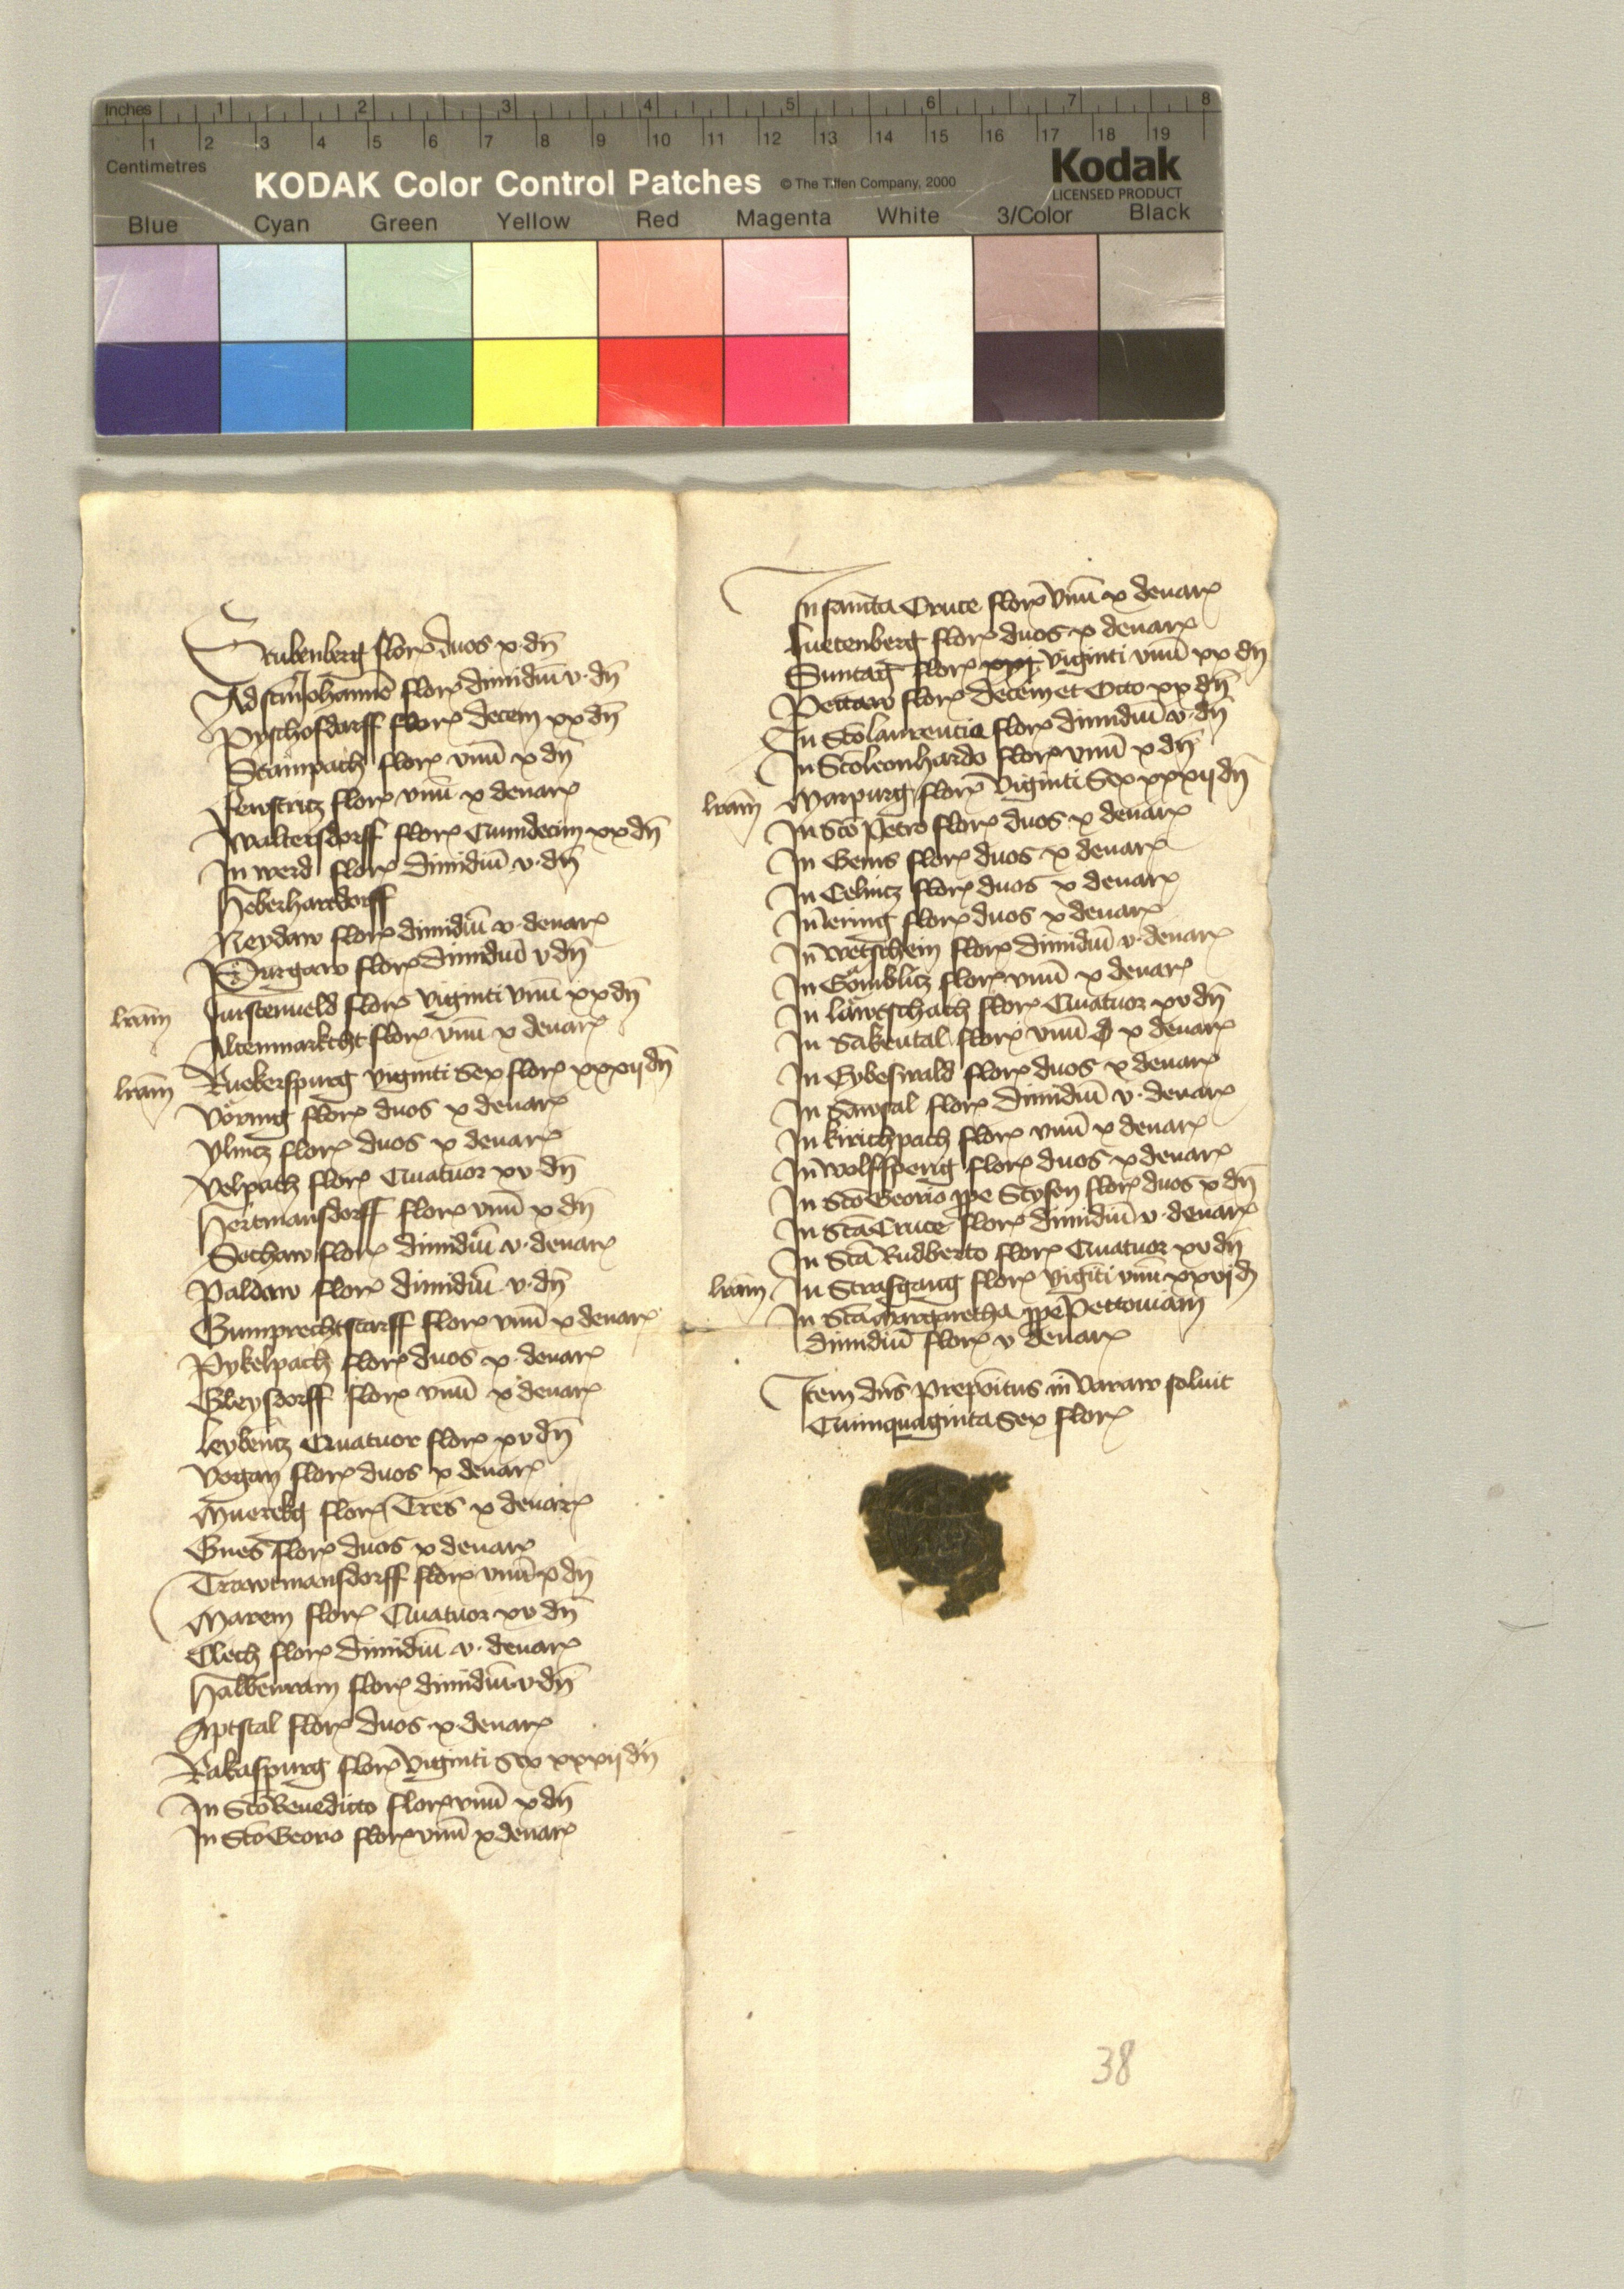 Inches 1 2 3 4 5 6 7 8
1 2 3 4 5 6 7 8 9 10 11 12 13 14 15 16 17 18 19
Centimetres
KODAK Color Control Patches © The Tiffen Company, 2000 Kodak
LICENSED PRODUCT
Blue Cyan Green Yellow Red Magenta White 3/Color Black
Stubenberg flor duos x dn̄
Ad sctm̄ Johannē flor dimidiū v dn̄
Pyschofdorff flor decem xx dn̄
Stainpach flor vnū x dn̄
Fewstritz flor vnū x denar
Waltersdorff flor Quindecim xx dn̄
In werd flor dimidiū v dn̄
Heberhartdorff
Neydaw flor dimidiū v denar
Burgaw flor dimidiū v dn̄
lram̄ Furstenueld flor viginti vnū xx dn̄
Altenmarkcht flor vnū x denar
lram̄ Ruekerspurg viginti Sex flor xxxij dn̄
Vöring flor duos x denar
Ylintz flor duos x denar
Velpach flor Quatuor xv dn̄
Hertmansdorff flor vnū x dn̄
Sochaw flor dimidiū v denar
Paldaw flor dimidiū v dn̄
Gumprechtstarff flor vnū x denar
Pykelpach flor duos x denar
Gleysdorff flor vnū x denar
Leybentz Quatuor flor xv dn̄
Vogan flor duos x denar
Muerekg flor Tres x denar
Gnes flor duos x denar
Trawtmansdorff flor vnū x dn̄
Marein flor Quatuor xv dn̄
Clech flor dimidiū v denar
Halbenrain flor dimidiū v dn̄
Aptstal flor duos x denar
Rakaspurg flor viginti Sex xxxij dn̄
In Scō Benedicto flor vnū x dn̄
In Scō Georio flor vnū x denar
In sancta Cruce flor vnū x denar
Luetenberg flor duos x denar
Suntag flor xxj viginti vnū xx dn̄
Pettaw flor decem et Octo xx dn̄
In Scō laurentio flor dimidiū v dn̄
In Scō leonhardo flor vnū x dn̄
lram̄ Marpurg flor viginti Sex xxxij dn̄
In Scō Petro flor duos x denar
In Gems flor duos x denar
In Celnitz flor duos x denar
In lering flor duos x denar
In wetschein flor dimidiū v denar
In Gömblitz flor vnū x denar
In läwtschach flor Quatuor xv dn̄
In Sakental flor vnū x denar
In Eybeswald flor duos x denar
In Sawsal flor dimidiū v denar
In kirichpach flor vnū x denar
In wolfsperig flor duos x denar
In Scō Georio ꝓpe Styfen flor duos x dn̄
In Scā Cruce flor dimidiū v denar
In Scō Rudberto flor Quatuor xv dn̄
lram̄ In Strasgang flor vigīti vnū xxvj dn̄
In Scā Margaretha ꝓpe Pettouiam
dimidiū flor v denar
Item dn̄s prepōitus in Varaw soluit
Quinquaginta Sex flor
38